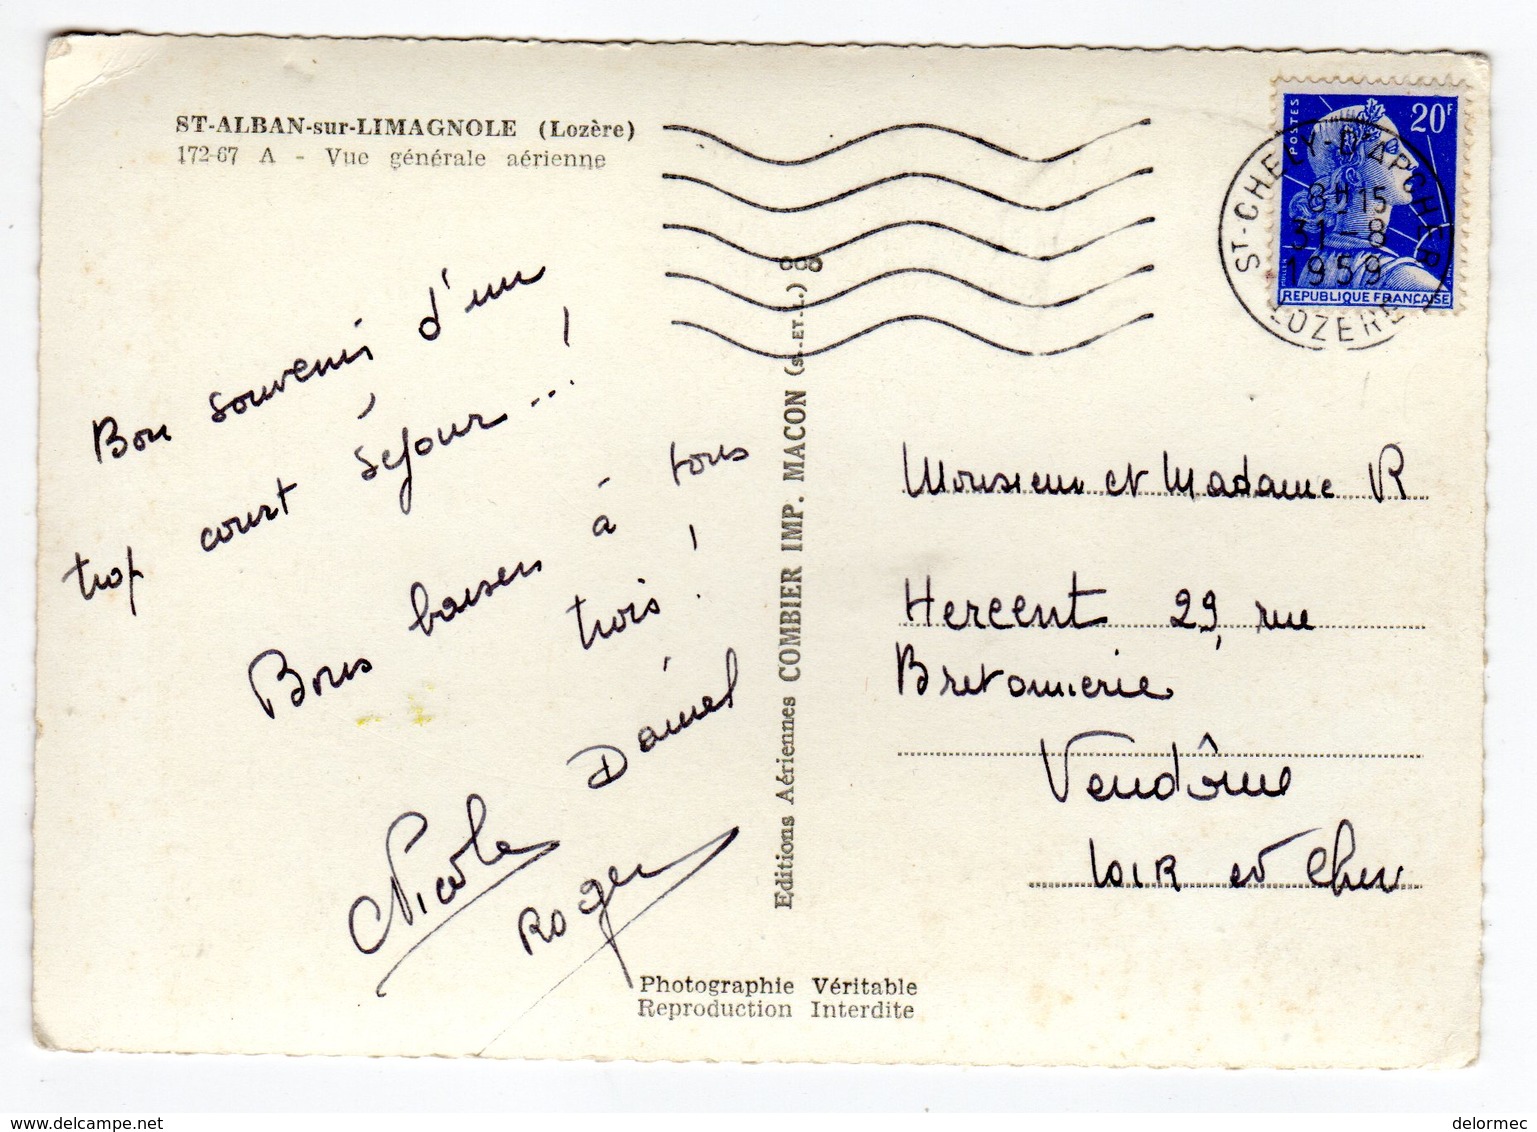 ST-ALBAN-sur-LIMAGNOLE (Lozère)
172-67 A - Vue générale aérienne
Bon souvenir d'un
trop court séjour...!
Bons baisers à tous
trois !
Daniel
Nicole
Roger
Editions Aériennes COMBIER IMP. MACON (S.-ET-L.)
Photographie Véritable
Reproduction Interdite
POSTES
20F
MULLER
REPUBLIQUE FRANÇAISE
ST-CHELY-D'APCHER
8H15
31-8
1959
LOZERE
Monsieur et Madame R
Hercent 29, rue
Bretonnerie
Vendôme
Loir et Cher
delormec